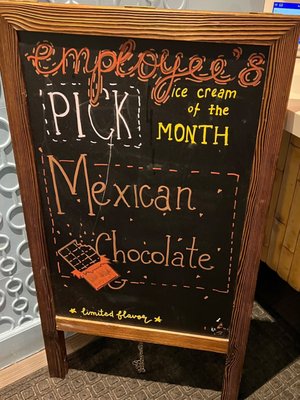 employee's
PICK
ice cream
of the
MONTH
Mexican
Chocolate
limited flavor